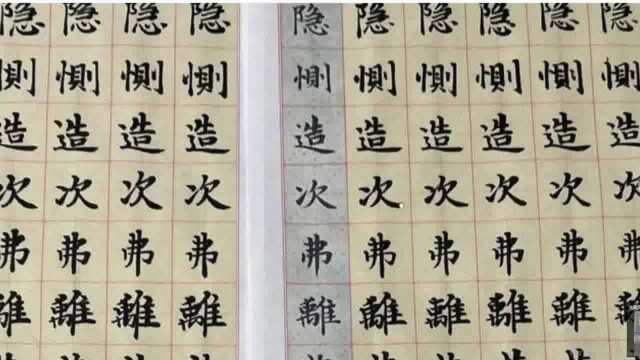 隐惻造次弗離
隐惻造次弗離
隐惻造次弗離
隐惻造次弗離
隐惻造次弗離
隐惻造次弗離
隐惻造次弗離
隐惻造次弗離
隐惻造次弗離
隐惻造次弗離